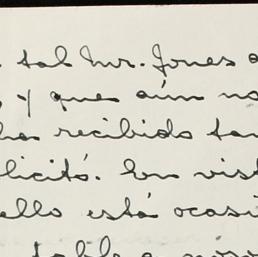 tal Mr. Jones
, y que aún no
ha recibido tan
licitó. En vist
ello está ocasi